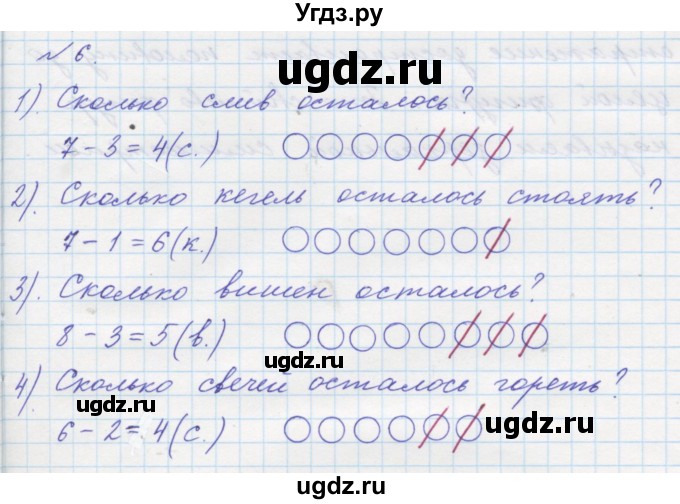 Угдз.ру
№ 6.
ugdz.ru
1). Сколько слив осталось?
7 - 3 = 4 (с.)
ugdz.ru
2). Сколько кегель осталось стоять?
7 - 1 = 6 (к.)
ugdz.ru
3). Сколько вишен осталось?
8 - 3 = 5 (в.)
ugdz.ru
4) Сколько свечей осталось гореть?
ugdz.ru
6 - 2 = 4 (с.)
ugdz.ru
ugdz.ru